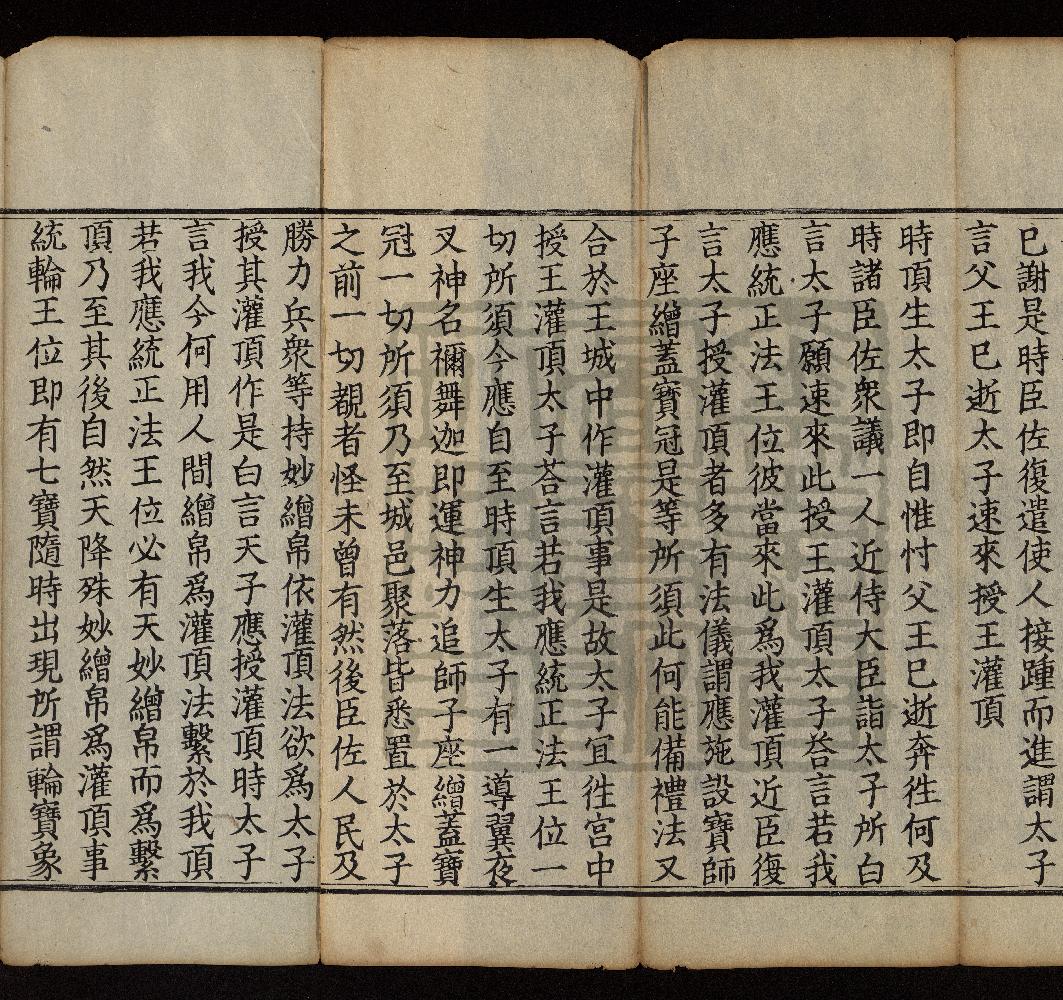 巳謝是時臣佐復遣使人接踵而進謂太子
言父王巳逝太子速來授王灌頂
時頂生太子即自惟忖父王巳逝奔徃何及
時諸臣佐衆議一人近侍大臣詣太子所白
言太子願速來此授王灌頂太子荅言若我
應統正法王位彼當來此爲我灌頂近臣復
言太子授灌頂者多有法儀謂應施設寶師
子座繒蓋寶冠是等所須此何能備禮法又
合於王城中作灌頂事是故太子宜徃宫中
授王灌頂太子荅言若我應統正法王位一
切所須今應自至時頂生太子有一導翼夜
叉神名禰舞迦即運神力追師子座繒蓋寶
冠一切所須乃至城邑聚落皆悉置於太子
之前一切覩者怪未曾有然後臣佐人民及
勝力兵衆等持妙繒帛依灌頂法欲爲太子
授其灌頂作是白言天子應授灌頂時太子
言我今何用人間繒帛爲灌頂法繫於我頂
若我應統正法王位必有天妙繒帛而爲繫
頂乃至其後自然天降殊妙繒帛爲灌頂事
統輪王位即有七寶隨時出現所謂輪寶象